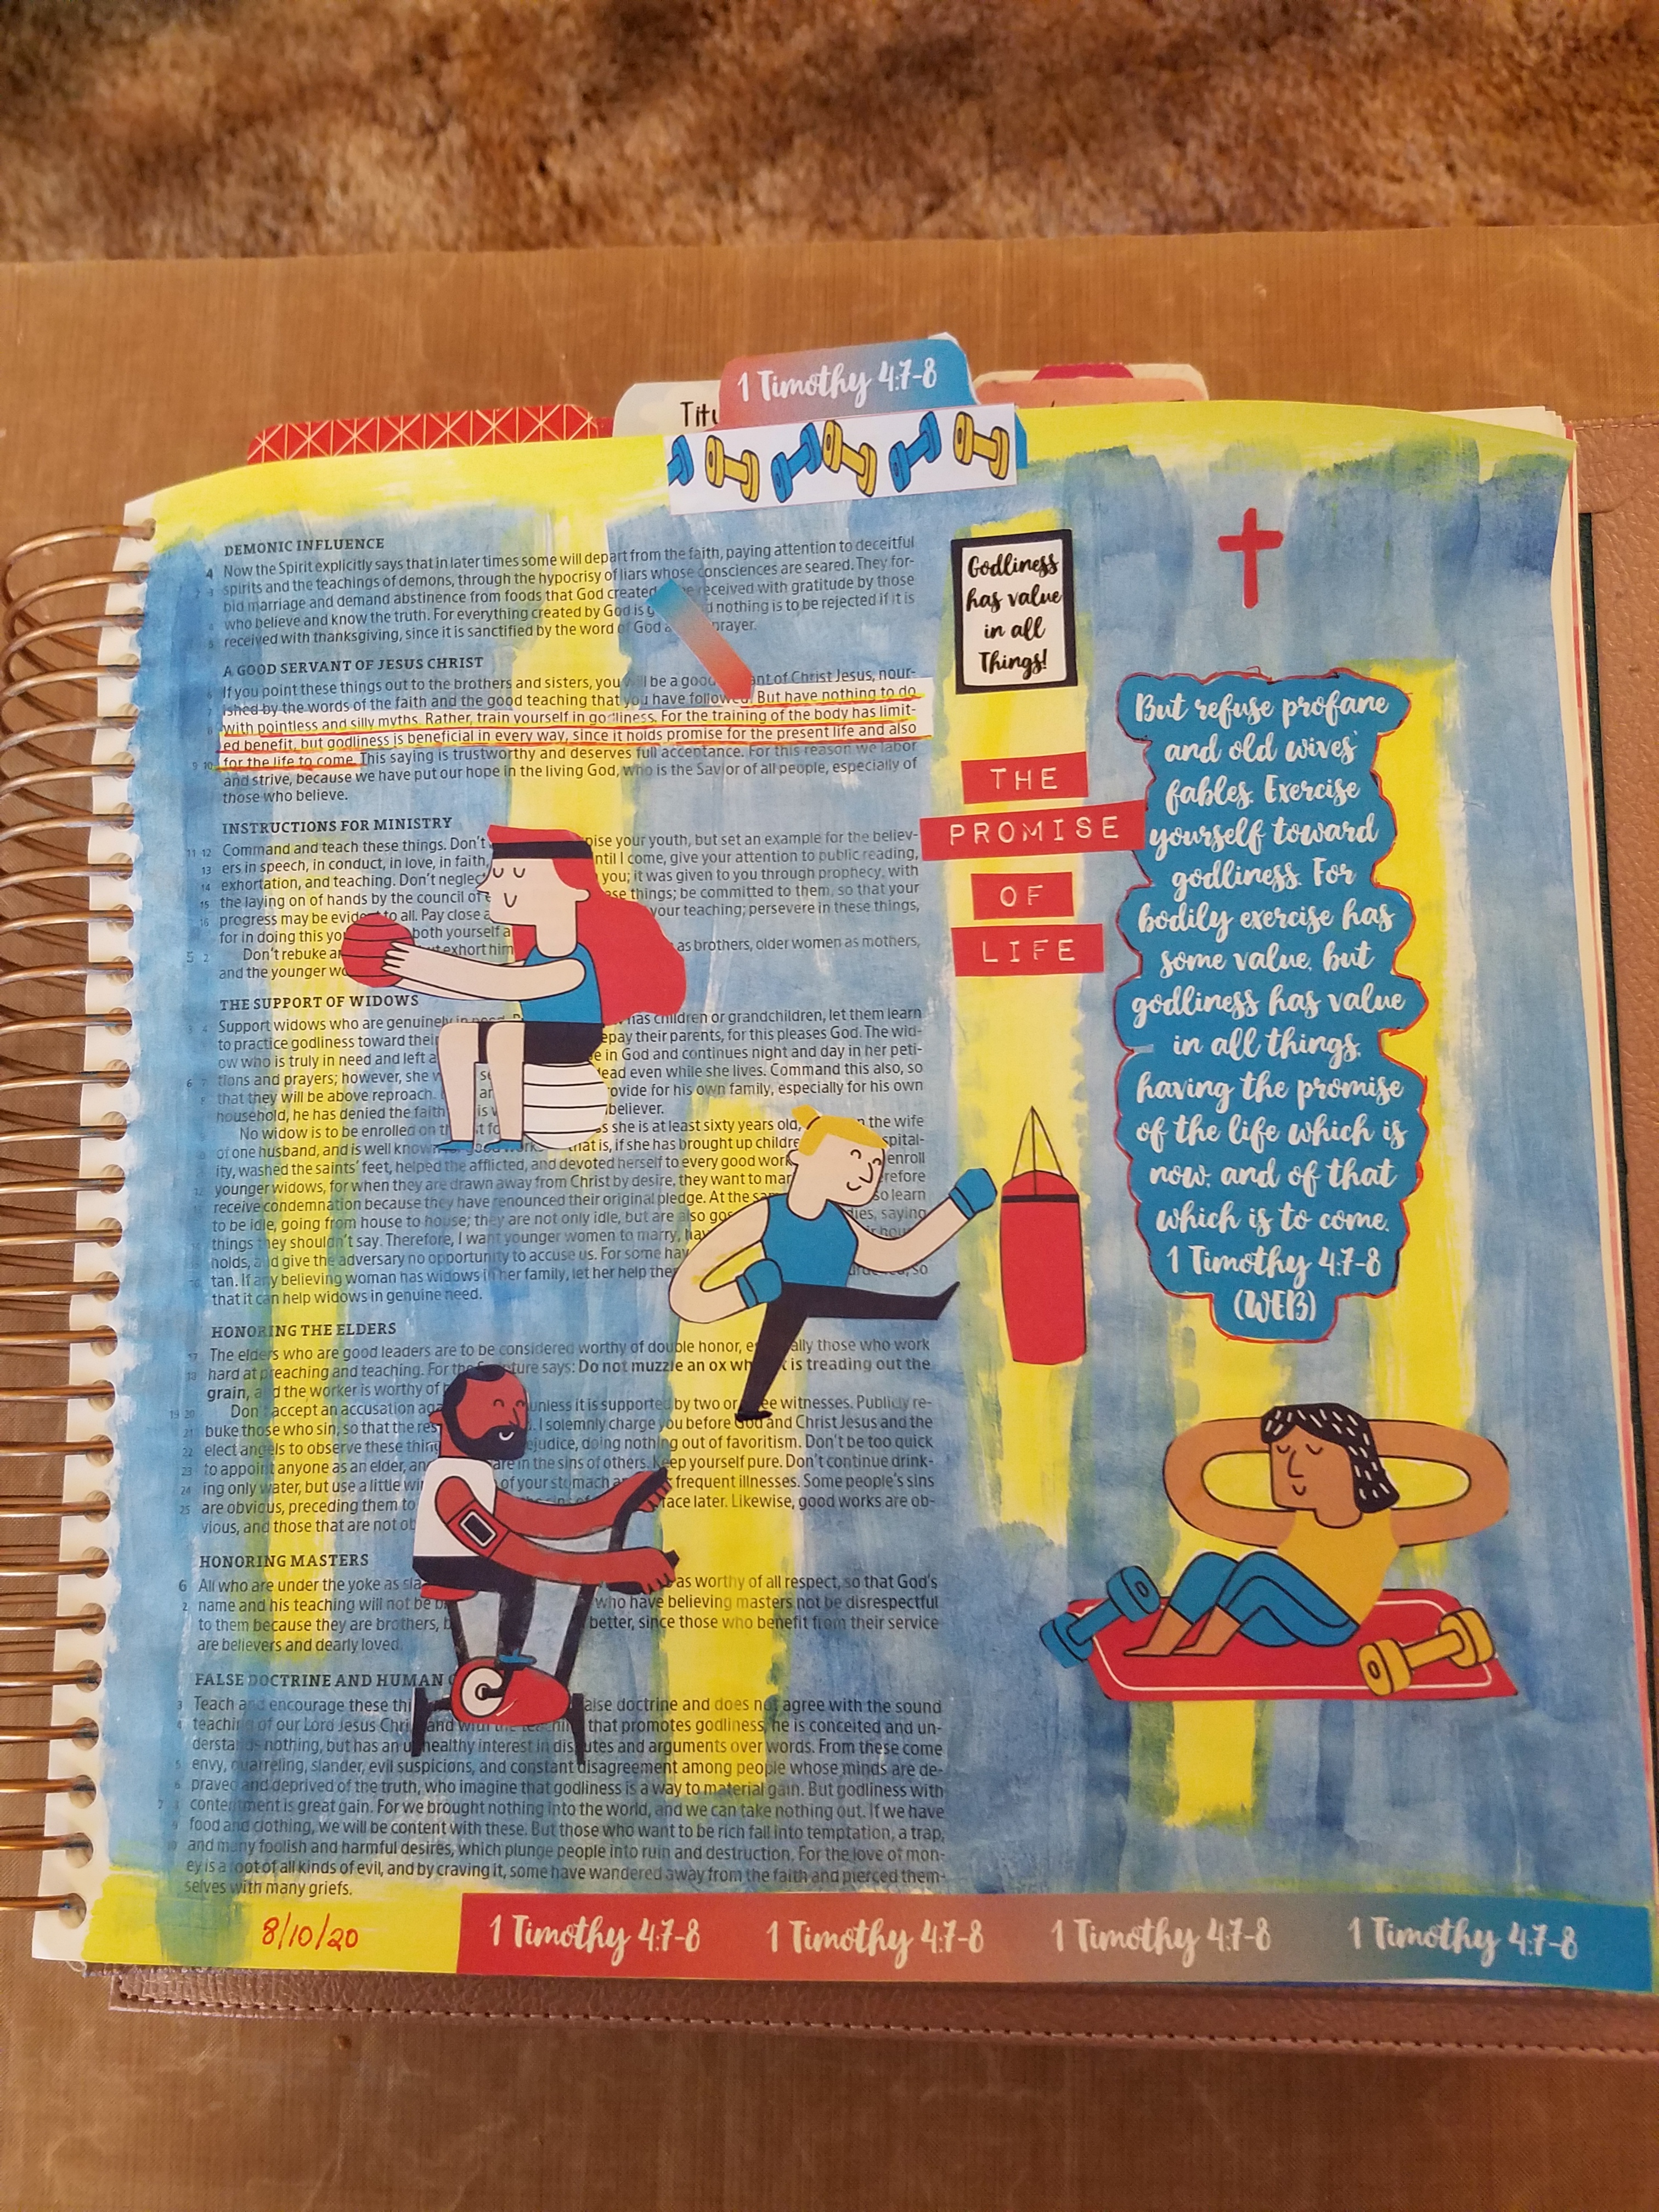 1 Timothy 4:7-8
Titu
DEMONIC INFLUENCE
4 Now the Spirit explicitly says that in later times some will depart from the faith, paying attention to deceitful
2 spirits and the teachings of demons, through the hypocrisy of liars whose consciences are seared. They for-
bid marriage and demand abstinence from foods that God created received with gratitude by those
4 who believe and know the truth. For everything created by God is nothing is to be rejected if it is
5 received with thanksgiving, since it is sanctified by the word of God prayer.
A GOOD SERVANT OF JESUS CHRIST
6 If you point these things out to the brothers and sisters, you will be a good of Christ Jesus, nour-
7 ished by the words of the faith and the good teaching that you have followed. But have nothing to do
with pointless and silly myths. Rather, train yourself in godliness. For the training of the body has limit-
ed benefit, but godliness is beneficial in every way, since it holds promise for the present life and also
9 10 for the life to come. This saying is trustworthy and deserves full acceptance. For this reason we labor
and strive, because we have put our hope in the living God, who is the Savior of all people, especially of
those who believe.
INSTRUCTIONS FOR MINISTRY
11 12 Command and teach these things. Don't your youth, but set an example for the believ-
13 ers in speech, in conduct, in love, in faith, I come, give your attention to public reading,
14 exhortation, and teaching. Don't neglect you; it was given to you through prophecy, with
15 the laying on of hands by the council of these things; be committed to them, so that your
16 progress may be evident to all. Pay close your teaching; persevere in these things,
for in doing this both yourself
5 2 Don't rebuke exhort him as brothers, older women as mothers,
and the younger
THE SUPPORT OF WIDOWS
Support widows who are genuinely has children or grandchildren, let them learn
to practice godliness toward their repay their parents, for this pleases God. The wid-
ow who is truly in need and left in God and continues night and day in her peti-
tions and prayers; however, she dead even while she lives. Command this also, so
that they will be above reproach. provide for his own family, especially for his own
household, he has denied the faith
No widow is to be enrolled on she is at least sixty years old, the wife
of one husband, and is well known that is, if she has brought up
ity, washed the saints' feet, helped the afflicted, and devoted herself to every good enroll
younger widows, for when they are drawn away from Christ by desire, they want to
receive condemnation because they have renounced their original pledge. At the learn
to be idle, going from house to house; they are not only idle, but are also saying
things they shouldn't say. Therefore, I want younger women to marry,
holds, and give the adversary no opportunity to accuse us. For some
tan. If any believing woman has widows in her family, let her help so
that it can help widows in genuine need.
HONORING THE ELDERS
17 The elders who are good leaders are to be considered worthy of double honor, those who work
18 hard at preaching and teaching. For the says: Do not muzzle an ox is treading out the
grain, and the worker is worthy of
19 20 Don't accept an accusation unless it is supported by two or witnesses. Publicly re-
21 buke those who sin, so that the I solemnly charge you before God and Christ Jesus and the
22 elect angels to observe these prejudice, doing nothing out of favoritism. Don't be too quick
23 to appoint anyone as an elder, in the sins of others. Keep yourself pure. Don't continue drink-
24 ing only water, but use a little of your stomach frequent illnesses. Some people's sins
25 are obvious, preceding them to later. Likewise, good works are ob-
vious, and those that are not
HONORING MASTERS
6 All who are under the yoke as as worthy of all respect, so that God's
2 name and his teaching will not be who have believing masters not be disrespectful
to them because they are brothers, better, since those who benefit from their service
are believers and dearly loved.
FALSE DOCTRINE AND HUMAN
3 Teach and encourage these false doctrine and does not agree with the sound
4 teaching of our Lord Jesus and with the that promotes godliness, he is conceited and un-
derstands nothing, but has an unhealthy interest in disputes and arguments over words. From these come
5 envy, quarreling, slander, evil suspicions, and constant disagreement among people whose minds are de-
6 praved and deprived of the truth, who imagine that godliness is a way to material gain. But godliness with
7 contentment is great gain. For we brought nothing into the world, and we can take nothing out. If we have
food and clothing, we will be content with these. But those who want to be rich fall into temptation, a trap,
and many foolish and harmful desires, which plunge people into ruin and destruction. For the love of mon-
ey is a root of all kinds of evil, and by craving it, some have wandered away from the faith and pierced them-
selves with many griefs.
Godliness
has value
in all
Things!
THE
PROMISE
OF
LIFE
But refuse profane
and old wives'
fables. Exercise
yourself toward
godliness. For
bodily exercise has
some value, but
godliness has value
in all things,
having the promise
of the life which is
now, and of that
which is to come.
1 Timothy 4:7-8
(WEB)
8/10/20
1 Timothy 4:7-8 1 Timothy 4:7-8 1 Timothy 4:7-8 1 Timothy 4:7-8